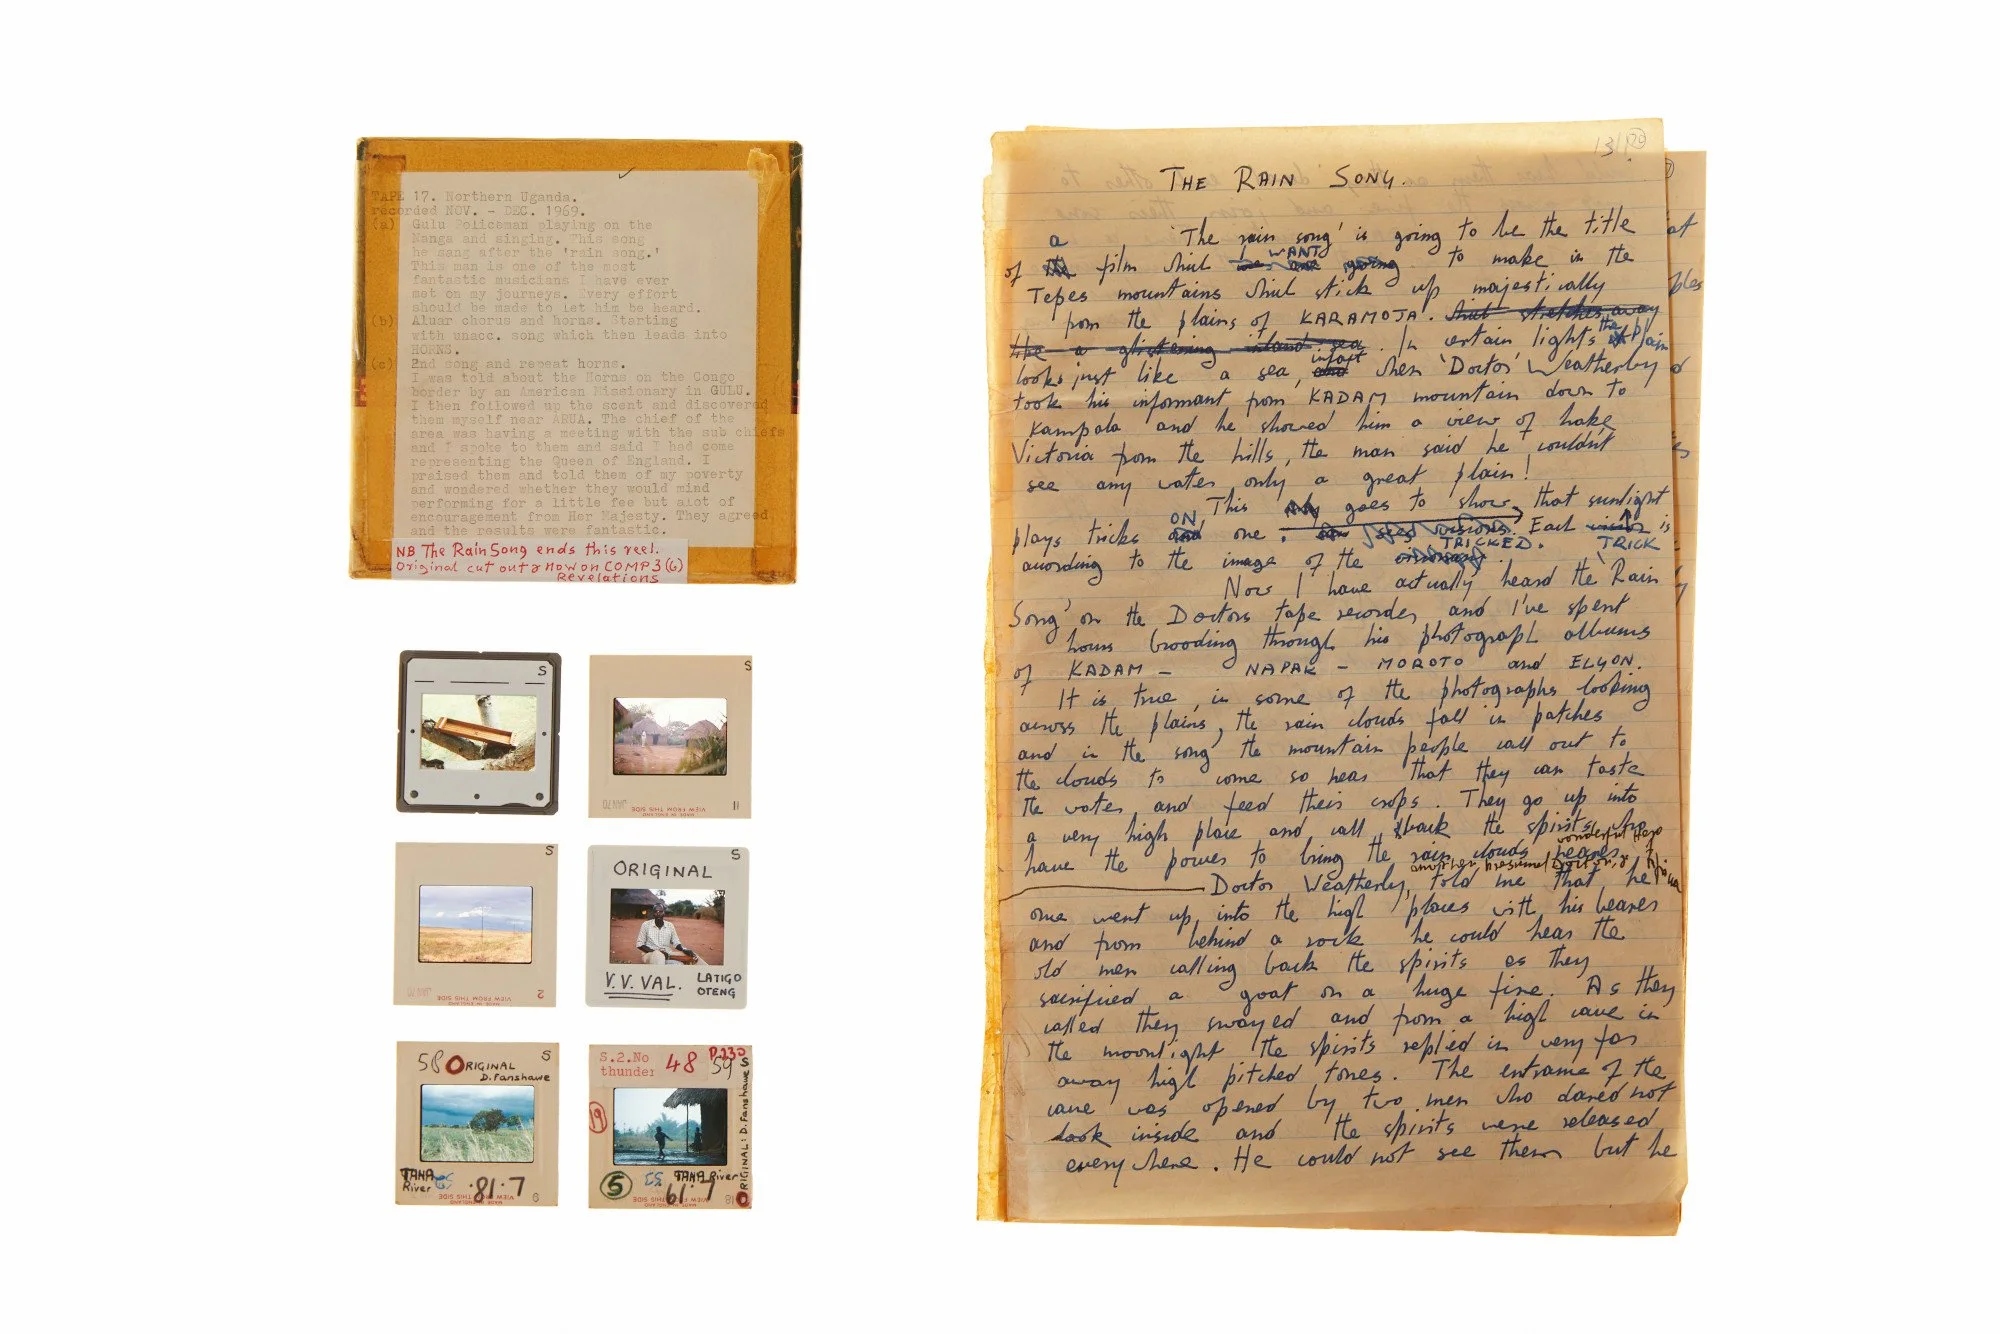 TAPE 17. Northern Uganda.
recorded NOV. - DEC. 1969.
(a) Gulu Policeman playing on the
Nanga and singing. This song
he sang after the 'rain song.'
This man is one of the most
fantastic musicians I have ever
met on my journeys. Every effort
should be made to let him be heard.
(b) Aluar chorus and horns. Starting
with unacc. song which then leads into
HORNS.
(c) 2nd song and repeat horns.
I was told about the Horns on the Congo
border by an American Missionary in GULU.
I then followed up the scent and discovered
them myself near ARUA. The chief of the
area was having a meeting with the sub chiefs
and I spoke to them and said I had come
representing the Queen of England. I
praised them and told them of my poverty
and wondered whether they would mind
performing for a little fee but alot of
encouragement from Her Majesty. They agreed
and the results were fantastic.
NB The Rain Song ends this reel.
Original cut out & now on COMP 3 (6)
Revelations
S
S
JAN 70
MADE IN ENGLAND
VIEW FROM THIS SIDE
11
S
JAN 70
MADE IN ENGLAND
VIEW FROM THIS SIDE
2
S
ORIGINAL
V.V. VAL.
LATIGO
OTENG
58 ORIGINAL S
D. Fanshawe
TANA
River
L.18.
MADE IN ENGLAND
VIEW FROM THIS SIDE
S.2.No 48 P.230
thunder 59 S
19
5
TANA River
L.19
ORIGINAL: D. Fanshawe
THE RAIN SONG.
a 'The rain song' is going to be the title
of film which I WANT to make in the
Tepes mountains which stick up majestically
from the plains of KARAMOJA. which stretches away
like a glistening inland sea. In certain lights the plain
looks just like a sea, infact when 'Doctor' Weatherby
took his informant from KADAM mountain down to
Kampala and he showed him a view of Lake
Victoria from the hills, the man said he couldn't
see any water only a great plain!
This goes to show, that sunlight
plays tricks ON one. Each TRICK is
according to the image of the TRICKED.
Now I have actually heard the 'Rain
Song' on the Doctors tape recorder, and I've spent
hours brooding through his photograph albums
of KADAM - NAPAK - MOROTO and ELGON.
It is true, in some of the photographs looking
across the plains, the rain clouds fall in patches
and in the song the mountain people call out to
the clouds to come so near that they can taste
the water and feed their crops. They go up into
a very high place and call back the spirits who
have the power to bring the rain clouds nearer.
Doctor Weatherby, told me that he
once went up into the high places with his bearer
and from behind a rock he could hear the
old men calling back the spirits as they
sacrificed a goat on a huge fire. As they
called they swayed and from a high cave in
the moonlight the spirits replied in very far
away high pitched tones. The entrance of the
cave was opened by two men who dared not
look inside and the spirits were released
everywhere. He could not see them but he